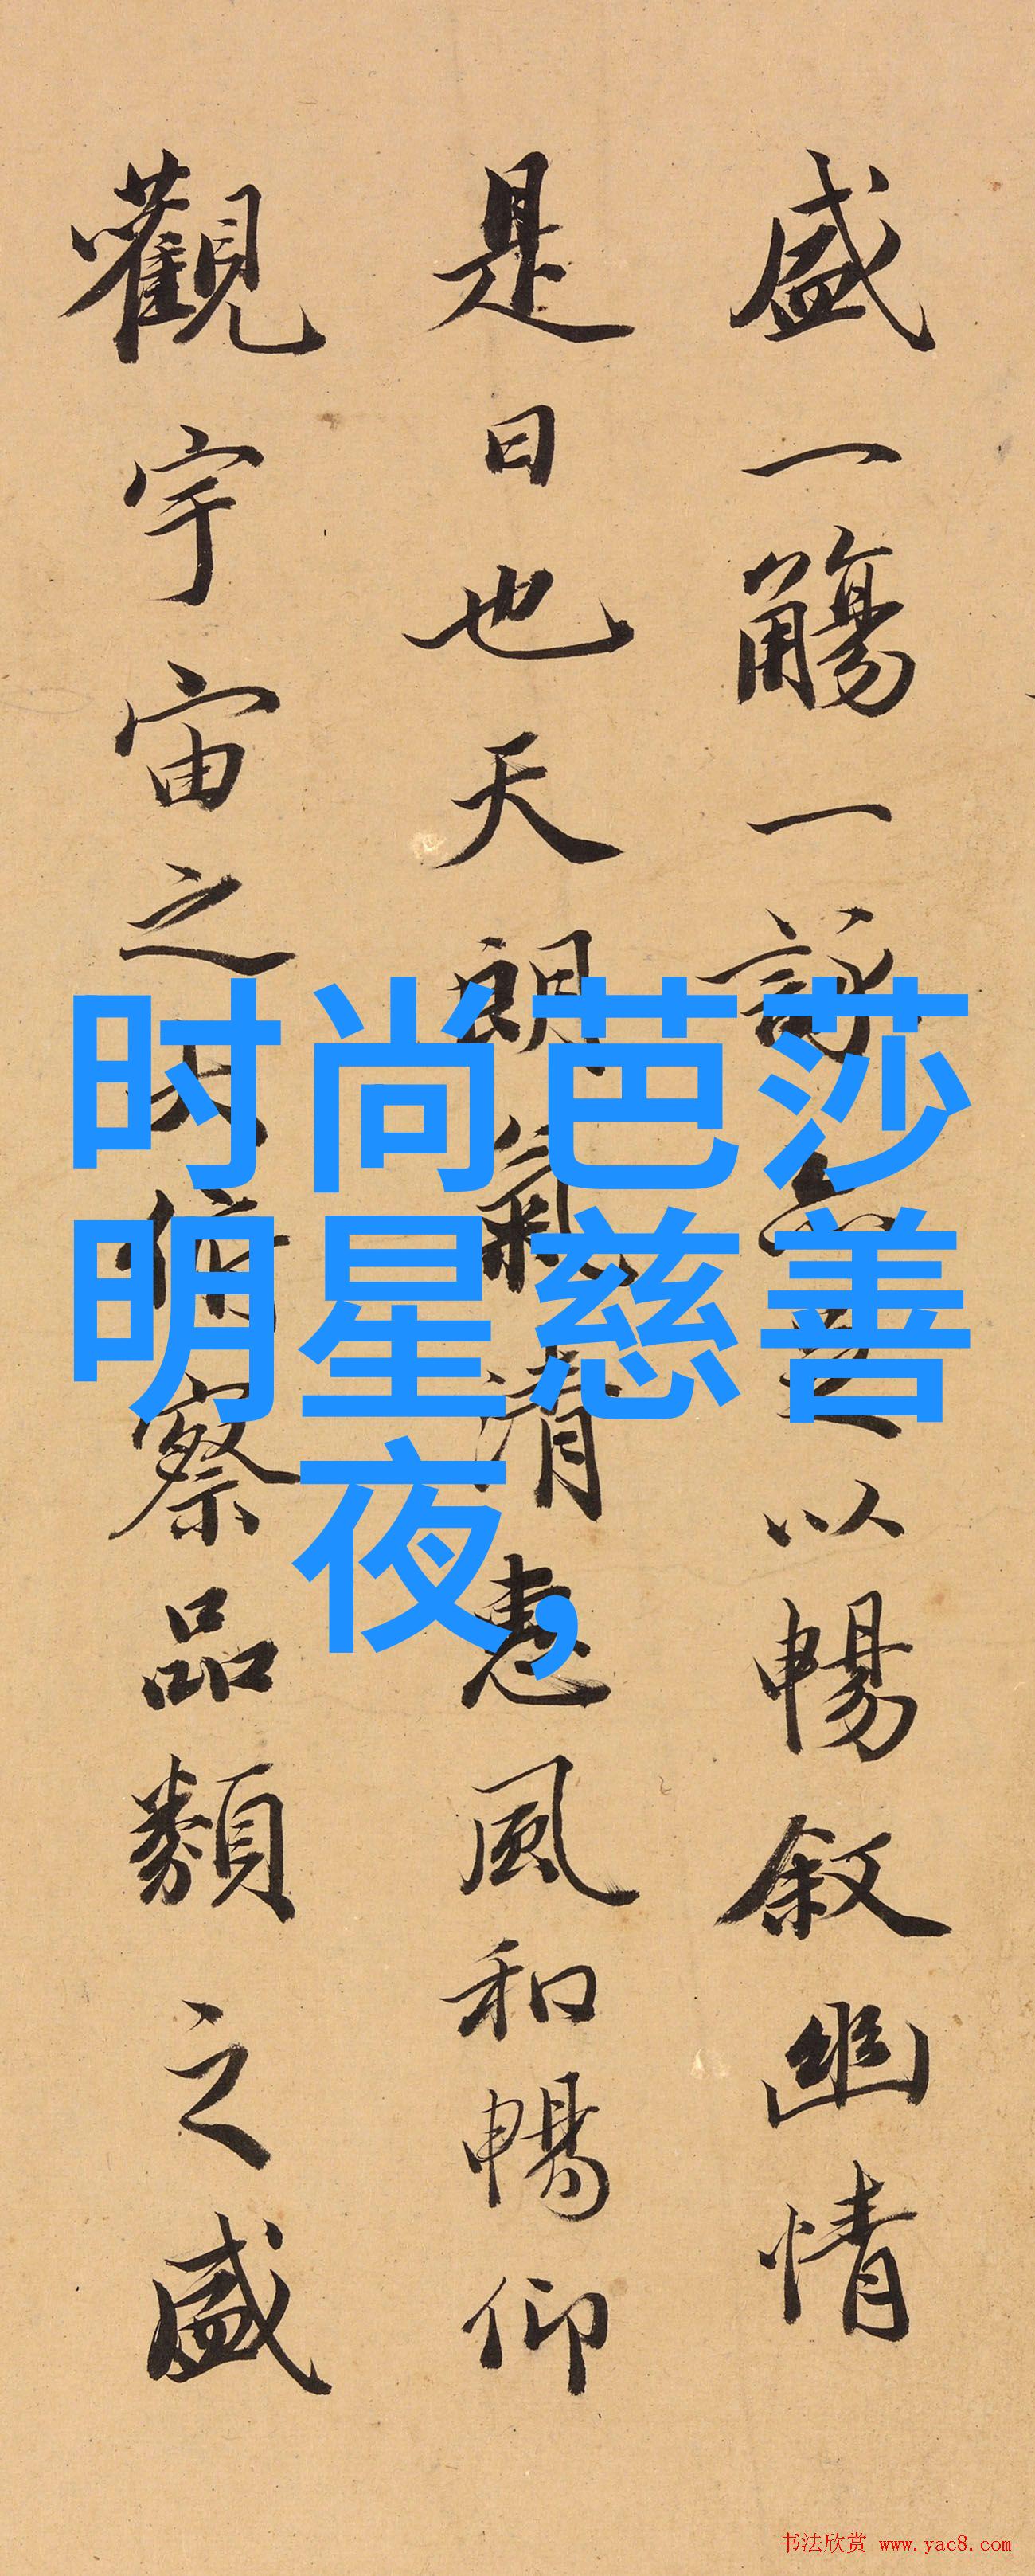 盛一觴一詠亦足以暢叙幽情
是日也天朗氣清惠風和暢仰
觀宇宙之大俯察品類之盛
时尚芭莎
明星慈善
夜,
书法欣赏 www.yac8.com